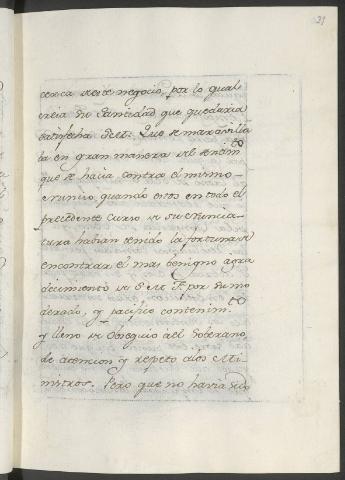 21
cerca de este negocio, por lo qual
creia Su Santidad que quedaria
satisfecha Ret. Que se maravilla
ba en gran manera del sentim.to
que se hacia contra el mismo
Nuncio, quando estos en todo el
precedente curso de su Nuncia-
tura habian tenido la fortuna de
encontrar el mas benigno agra
decimiento de S. M. F. por su mo
derado, y pacifico contenim.to
y lleno de obsequio al Soberano,
de atencion y respeto a los Mi-
nistros. Pero que no havia sido